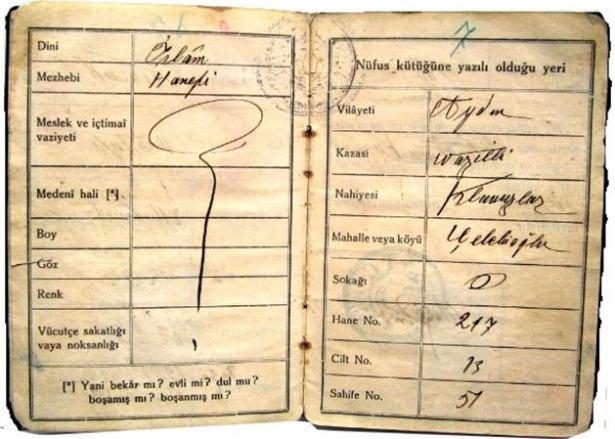 Dini İslâm
Mezhebi Hanefi
Meslek ve içtimaî
vaziyeti
Medenî hali [*]
Boy
Göz
Renk
Vücutçe sakatlığı
vaya noksanlığı
[*] Yani bekâr mı? evli mi? dul mu?
boşamış mı? boşanmış mı?
7
Nüfus kütüğüne yazılı olduğu yeri
Vilâyeti Aydın
Kazasi
Nahiyesi
Mahalle veya köyü
Sokağı 0
Hane No. 217
Cilt No. 13
Sahife No. 51